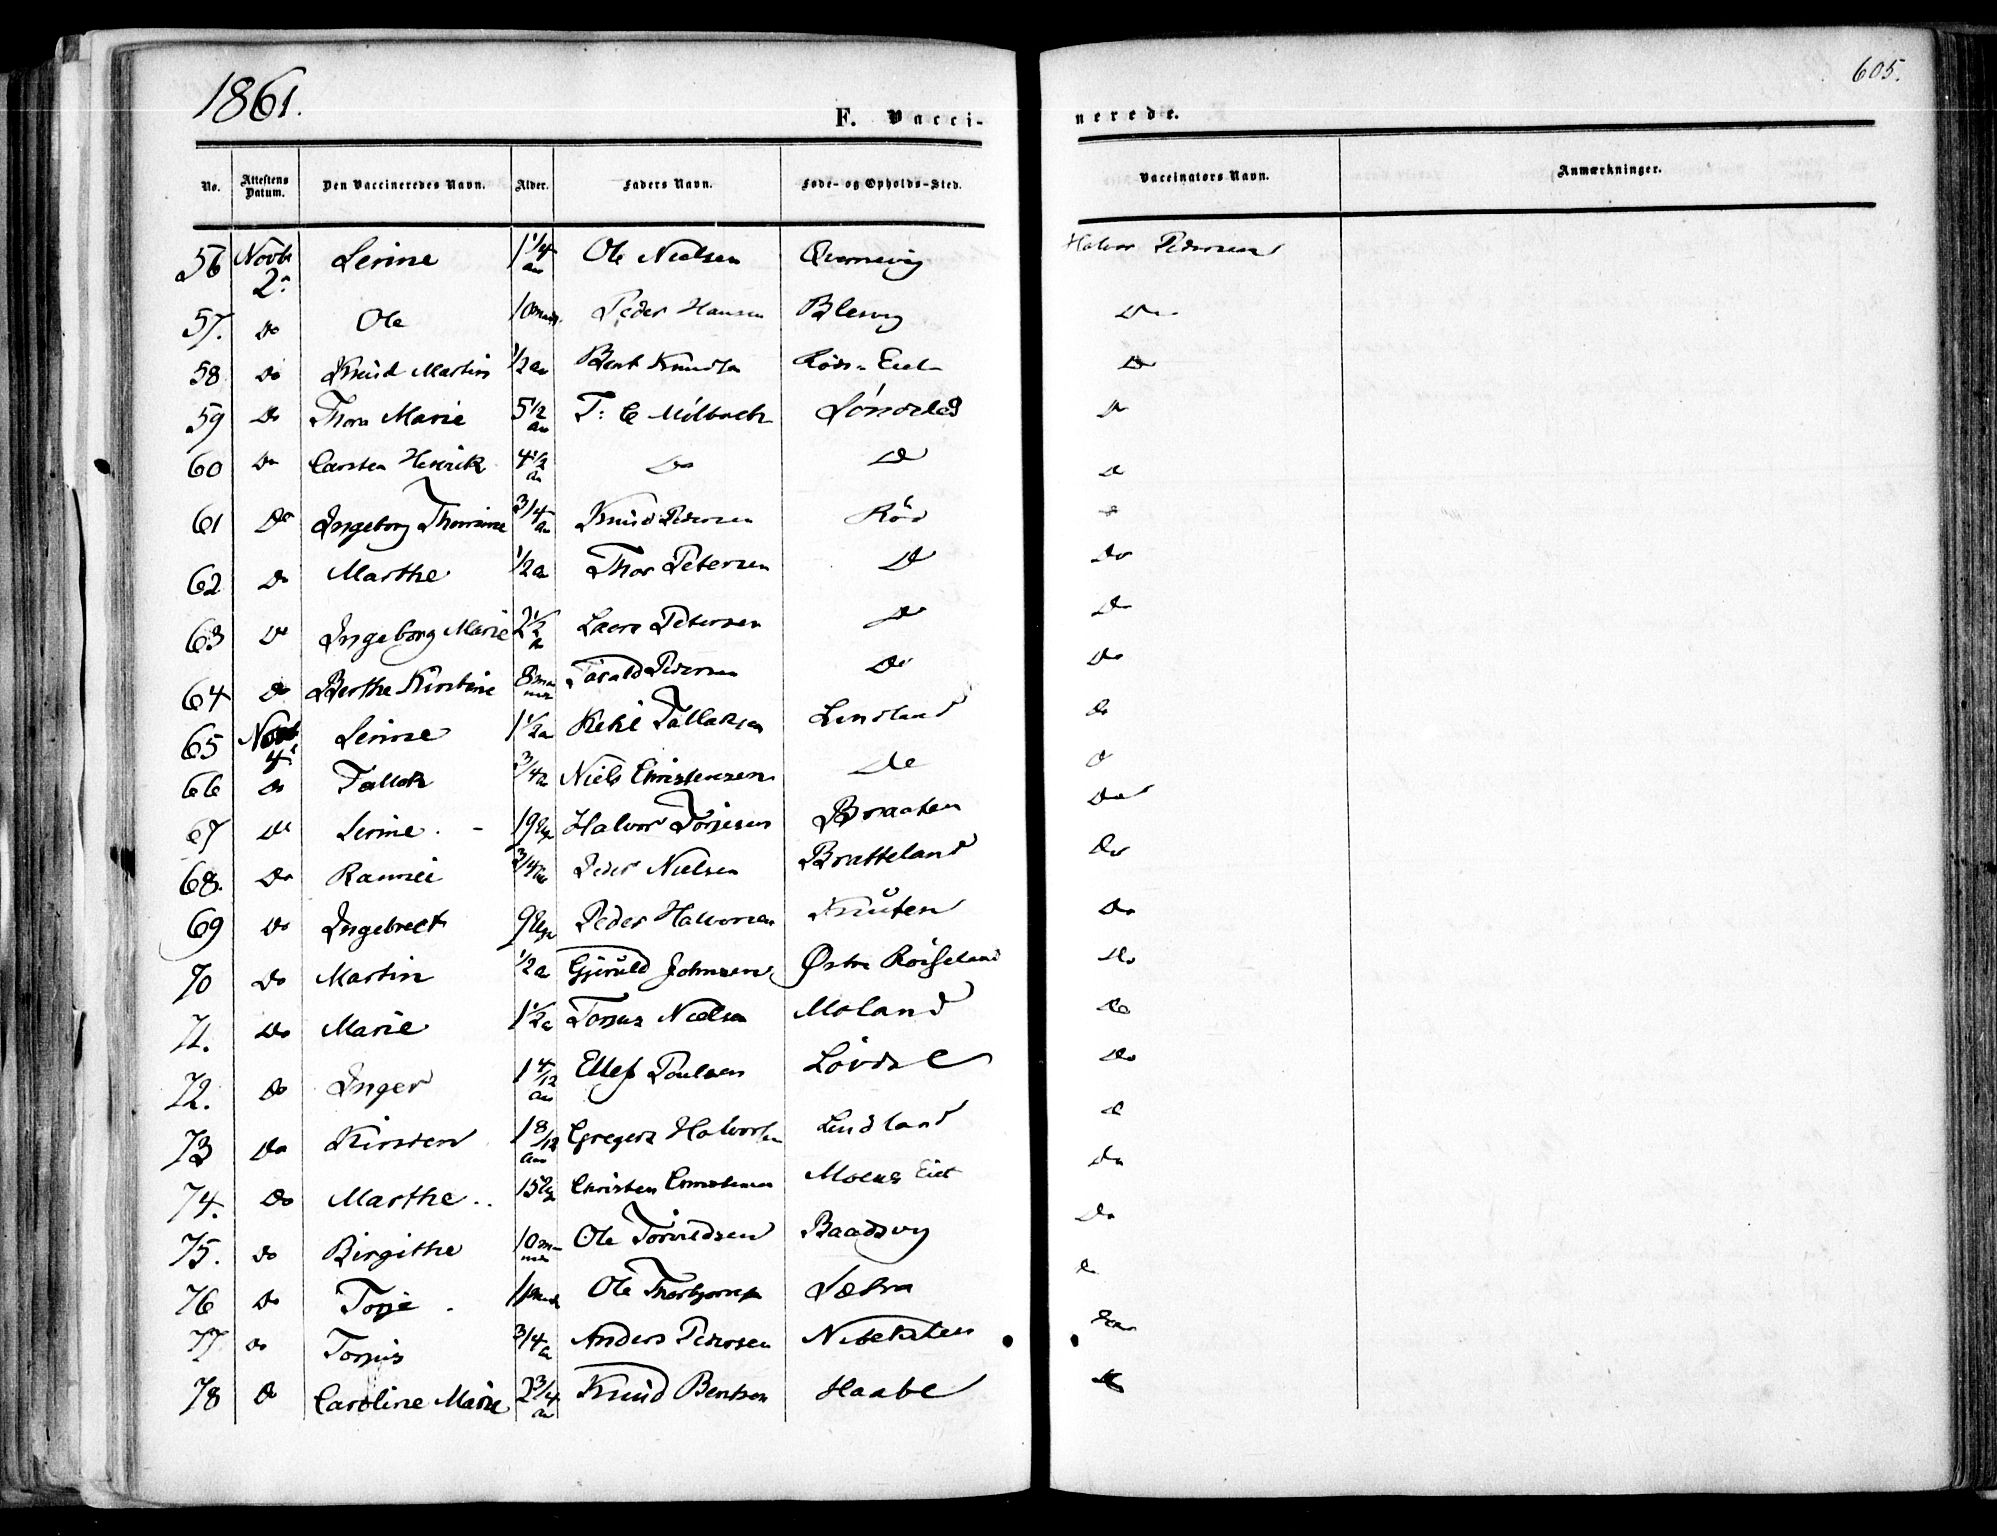 1861.
605.
F. Vacci-
nerede.
No. Attestens Datum. Den Vaccineredes Navn. Alder. Faders Navn. Føde- og Opholds-Sted. Vaccinators Navn. Anmærkninger.
56 Novbr 2. Serine 1 1/4 aar Ole Nielsen Qvernevig Halvor Pedersen
57. Do Ole 10 Peder Hansen Blesvig Do
58 Do Knud Martin 1/2 aar Bent Knudsen Eiet Do
59 Do Thora Marie 5 1/2 aar T: C Milbach Sönde Do
60 Do Carsten Henrik 4 1/2 aar Do Do Do
61 Do Ingeborg Thomine 3/4 aar Knud Pedersen Röd Do
62 Do Marthe 1/2 a Thor Petersen Do Do
63 Do Ingeborg Marie 2 1/2 a Laers Petersen Do Do
64 Do Berthe Kirstine 8 Tarald Pedersen Do Do
65 Novbr 4. Serine 1 1/2 a Tallaksen Lindland Do
66 Do Tallak 3/4 a Niels Christensen Do Do
67 Do Serine 19 Uger Halvor Torjesen Braaten Do
68. Do Rannei 3/4 aar Peder Nielsen Bratteland Do
69 Do Ingebrect 9 Uger Peder Halvorsen Knuten Do
70 Do Martin 1/2 a Gjeruld Johnsen Østre Röiseland Do
71. Do Marie 1 1/2 a Torjus Nielsen Moland Do
72. Do Inger 1 4/12 aar Ellef Poulsen Lövdal Do
73 Do Kirsten 1 8/12 aar Gregers Halvorsen Lindland Do
74. Do Marthe 15 Uger Christen Eiet Do
75. Do Birgithe 10 Ole Torvildsen Baadsvig Do
76 Do Torje Ole Thorbjørnsen Sætra Do
77. Do Torjus 3/4 a Anders Pedersen Do
78 Do Caroline Marie 2 3/4 aar Knud Bentsen Haabe Do